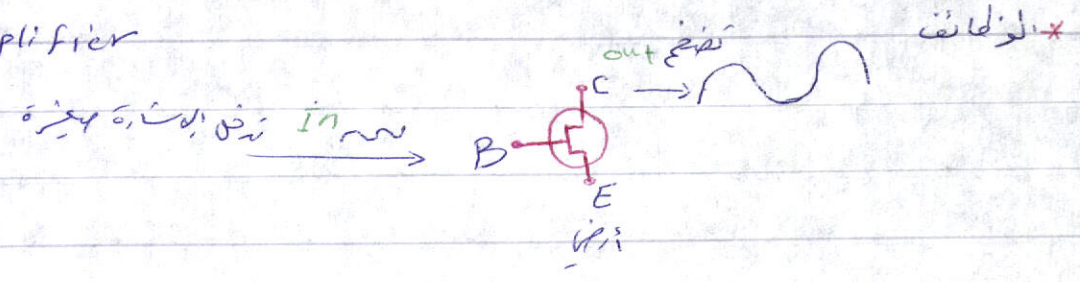 * الوظائف
plifier
تضخم out
C
تدخل الاشارة صغيرة In
B
E
أرضي